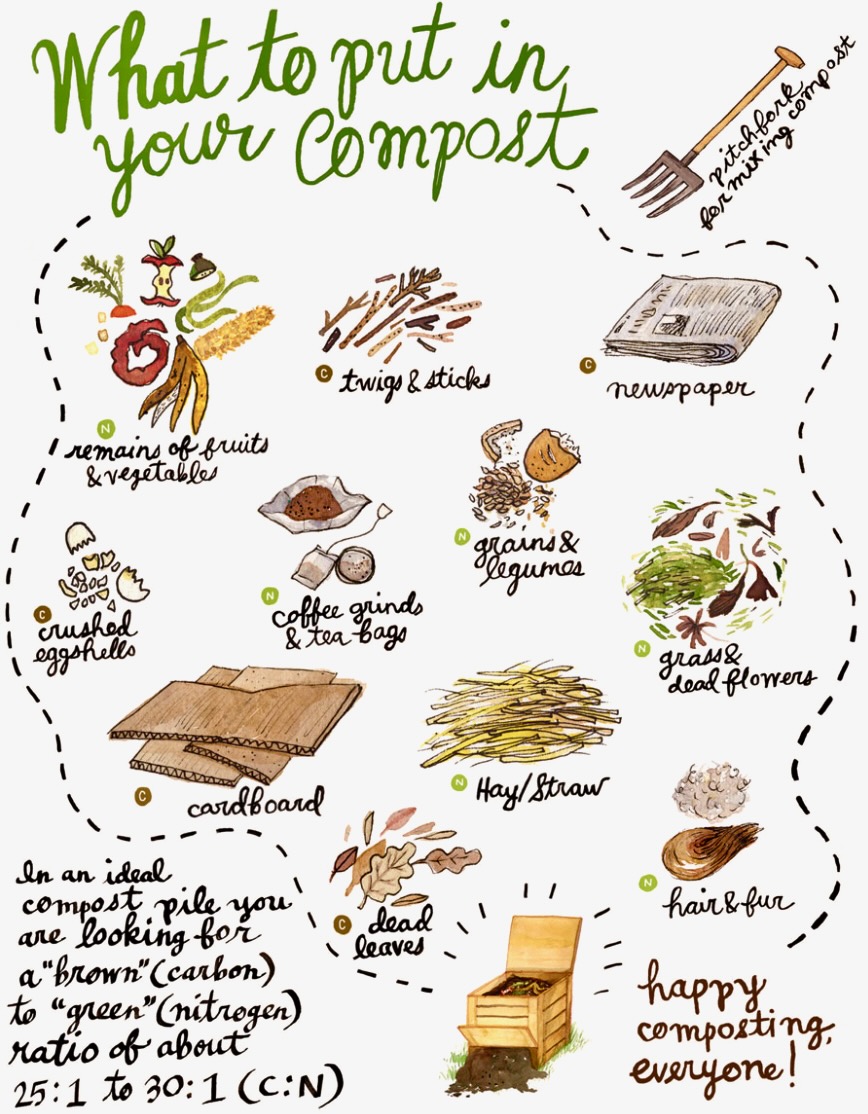 What to put in
your Compost
pitchfork
for mixing compost
N
remains of fruits
& vegetables
C
twigs & sticks
C
newspaper
C
crushed
eggshells
N
coffee grinds
& tea bags
N
grains &
legumes
N
grass &
dead flowers
C
cardboard
N
Hay/Straw
N
hair & fur
C
dead
leaves
In an ideal
compost pile you
are looking for
a "brown" (carbon)
to "green" (nitrogen)
ratio of about
25:1 to 30:1 (C:N)
happy
composting,
everyone!